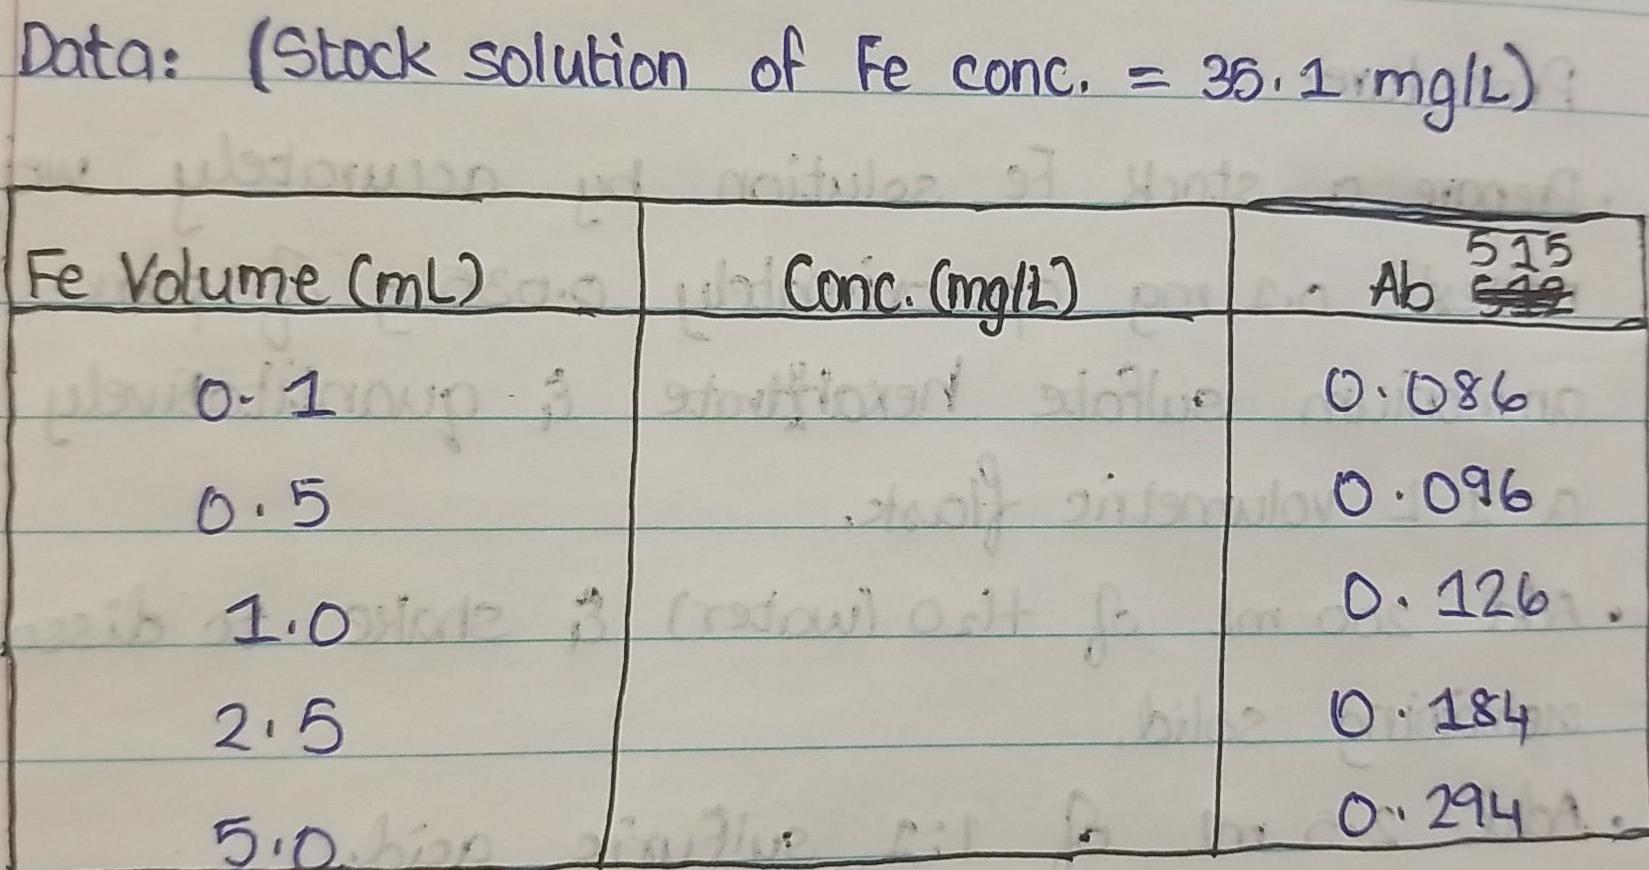 Data: (Stock solution of Fe conc. = 35.1 mg/L)
Fe Volume (mL) Conc. (mg/L) Ab 515
0.1 0.086
0.5 0.096
1.0 0.126
2.5 0.184
5.0 0.294